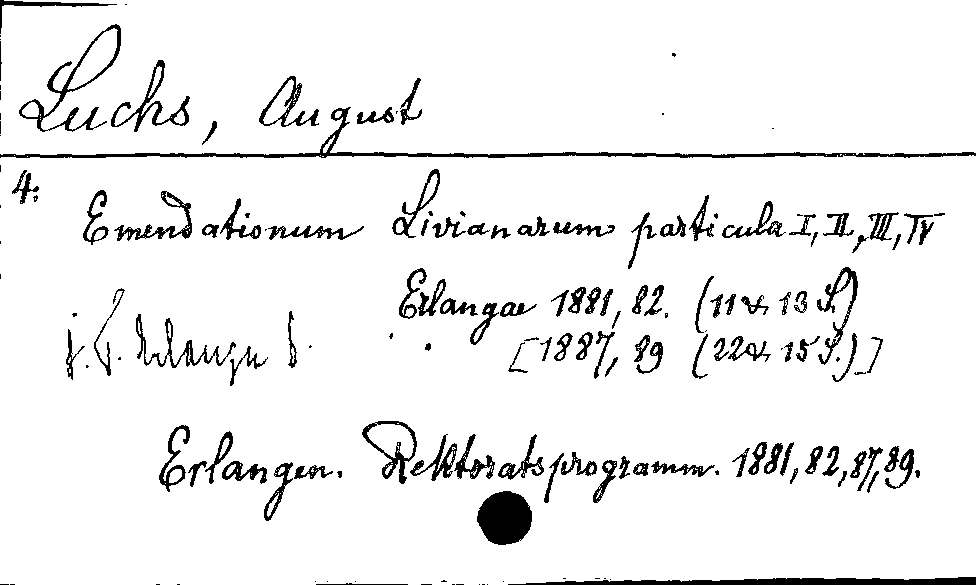 Luchs, August
4:
Emendationum Livianarum particula I, II, III, IV
Erlangae 1881, 82. (11 & 13 S.)
[1887, 89 (22 & 15 S.)]
Erlangen. Rektoratsprogramm. 1881, 82, 87, 89.